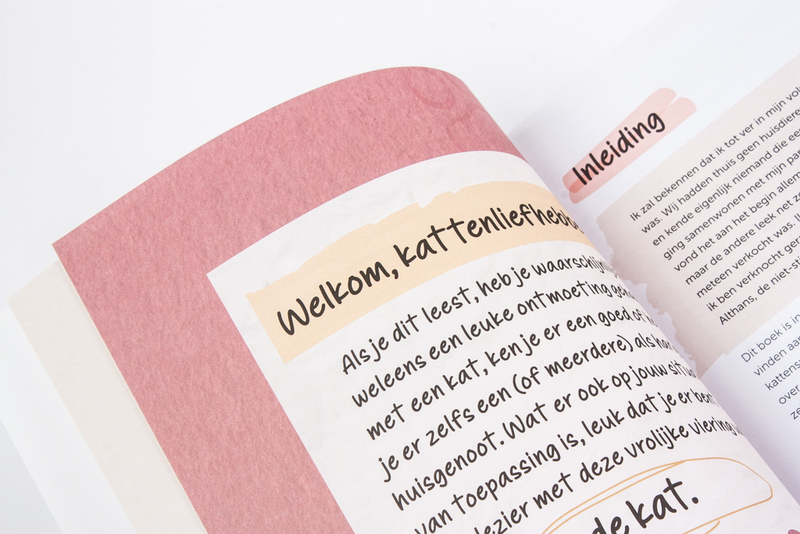 Welkom, kattenliefhebb
Als je dit leest, heb je waarschijn
weleens een leuke ontmoeting ge
met een kat, ken je er een goed of
je er zelfs een (of meerdere) als
huisgenoot. Wat er ook op jouw sit
van toepassing is, leuk dat je er
lezier met deze vrolijke viering
de kat.
Inleiding
Ik zal bekennen dat ik tot ver in mijn vol
was. Wij hadden thuis geen huisdiere
en kende eigenlijk niemand die ee
ging samenwonen met mijn par
vond het aan het begin allem
maar de andere leek net zo
meteen verkocht was. I
ik ben verknocht ger
Althans, de niet-st
Dit boek is in
vinden aan
kattens
over
ze